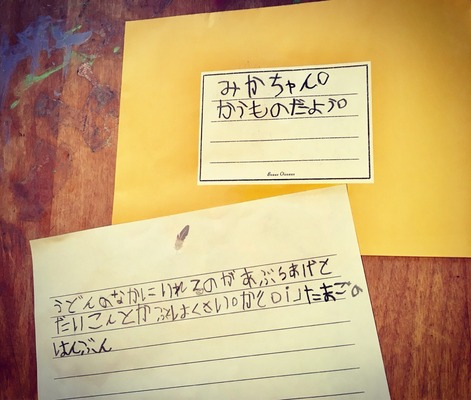 みかちゃん。
かうものだよう。
うどんのなかにいれるのがあぶらあげと
だいこんとかぶとはくさい。 たまごの
はんぶん